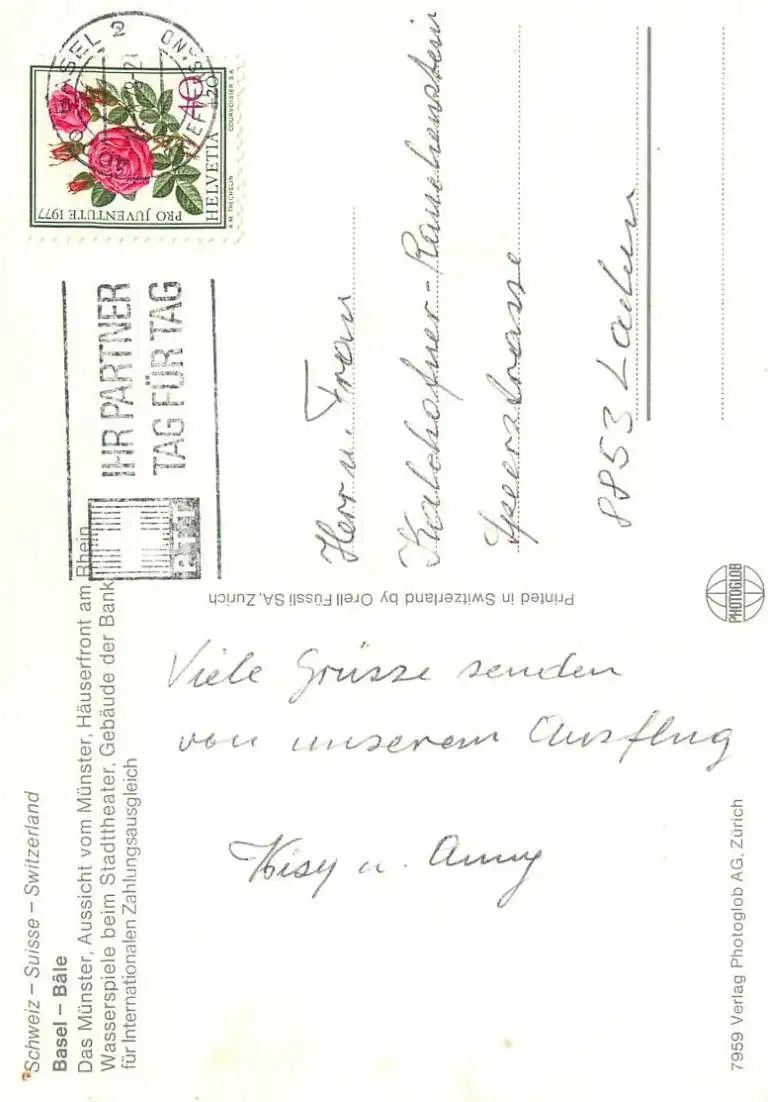 Schweiz – Suisse – Switzerland
Basel – Bâle
Das Münster, Aussicht vom Münster, Häuserfront am Rhein
Wasserspiele beim Stadttheater, Gebäude der Bank
für Internationalen Zahlungsausgleich
Viele Grüsse senden
von unserem Ausflug
u. Anny
7959 Verlag Photoglob AG, Zürich
Printed in Switzerland by Orell Füssli SA, Zurich
PHOTOGLOB
IHR PARTNER
TAG FÜR TAG
PTT
BASEL 2
HELVETIA
PRO JUVENTUTE 1977
40
20
A.M. TRECHSLIN
COURVOISIER S.A.
Herr u. Frau
Kalchofner-Rauchenstein
Speerstrasse
8853 Lachen